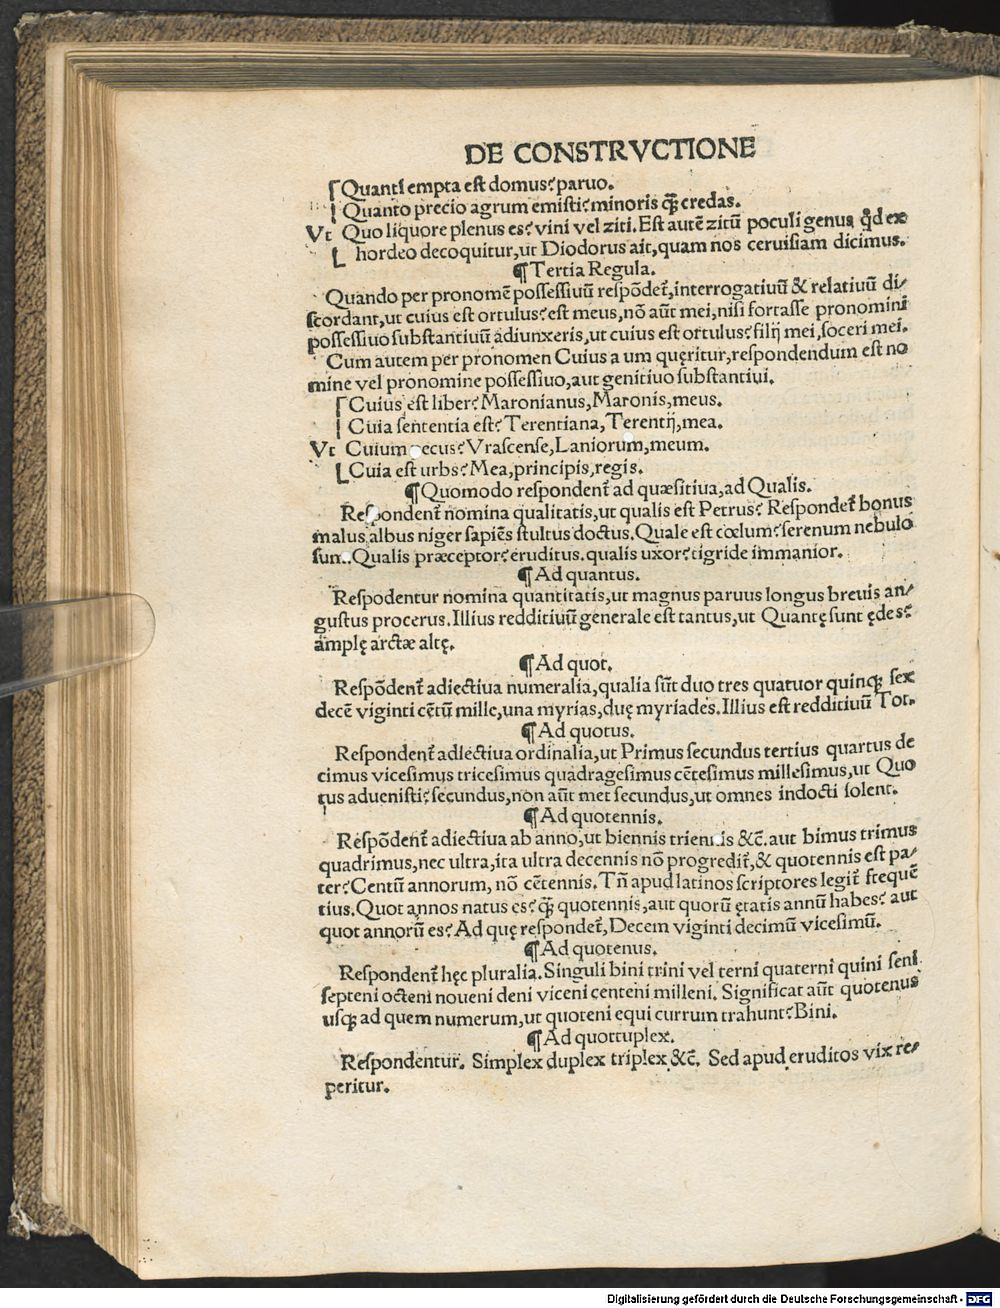 DE CONSTRVCTIONE
Quanti empta est domus? paruo.
Quanto precio agrum emisti? minoris q̃ credas.
Vt Quo liquore plenus es? vini vel ziti. Est autẽ zitũ poculi genus, qd̃ ex
hordeo decoquitur, ut Diodorus ait, quam nos ceruisiam dicimus.
¶ Tertia Regula.
Quando per pronomẽ possessiuũ respõdet̃, interrogatiuũ & relatiuũ di/
scordant, ut cuius est ortulus? est meus, nõ aũt mei, nisi fortasse pronomini
possessiuo substantiuũ adiunxeris, ut cuius est ortulus? filij mei, soceri mei.
Cum autem per pronomen Cuius a um quęritur, respondendum est no
mine vel pronomine possessiuo, aut genitiuo substantiui.
Cuius est liber? Maronianus, Maronis, meus.
Cuia sententia est? Terentiana, Terentij, mea.
Vt Cuium pecus? Vrascense, Laniorum, meum.
Cuia est urbs? Mea, principis, regis.
¶ Quomodo respondent̃ ad quæsitiua, ad Qualis.
Respondent̃ nomina qualitatis, ut qualis est Petrus? Respondet̃ bonus
malus albus niger sapiẽs stultus doctus. Quale est cœlum? serenum nebulo
sun.. Qualis præceptor? eruditus. qualis uxor? tigride immanior.
¶ Ad quantus.
Respodentur nomina quantitatis, ut magnus paruus longus breuis an/
gustus procerus. Illius redditiuũ generale est tantus, ut Quantę sunt ędes?
amplę arctæ altę.
¶ Ad quot.
Respõdent̃ adiectiua numeralia, qualia sũt duo tres quatuor quinq; sex
decẽ viginti cẽtũ mille, una myrias, duę myriades. Illius est redditiuũ Tot.
¶ Ad quotus.
Respondent̃ adiectiua ordinalia, ut Primus secundus tertius quartus de
cimus vicesimus tricesimus quadragesimus cẽtesimus millesimus, ut Quo
tus aduenisti? secundus, non aũt met secundus, ut omnes indocti solent.
¶ Ad quotennis.
Respõdent̃ adiectiua ab anno, ut biennis triennis &c̃. aut bimus trimus
quadrimus, nec ultra, ita ultra decennis nõ progredit̃, & quotennis est pa/
ter? Centũ annorum, nõ cẽtennis. Tñ apud latinos scriptores legit̃ frequẽ
tius. Quot annos natus es? q̃ quotennis, aut quorũ ętatis annũ habes? aut
quot annorũ es? Ad quę respondet̃, Decem viginti decimũ vicesimũ.
¶ Ad quotenus.
Respondent̃ hęc pluralia. Singuli bini trini vel terni quaterni quini seni
septeni octeni noueni deni viceni centeni milleni. Significat aũt quotenus
usq; ad quem numerum, ut quoteni equi currum trahunt? Bini.
¶ Ad quottuplex.
Respondentur. Simplex duplex triplex &c̃. Sed apud eruditos vix re/
peritur.
Digitalisierung gefördert durch die Deutsche Forschungsgemeinschaft - DFG